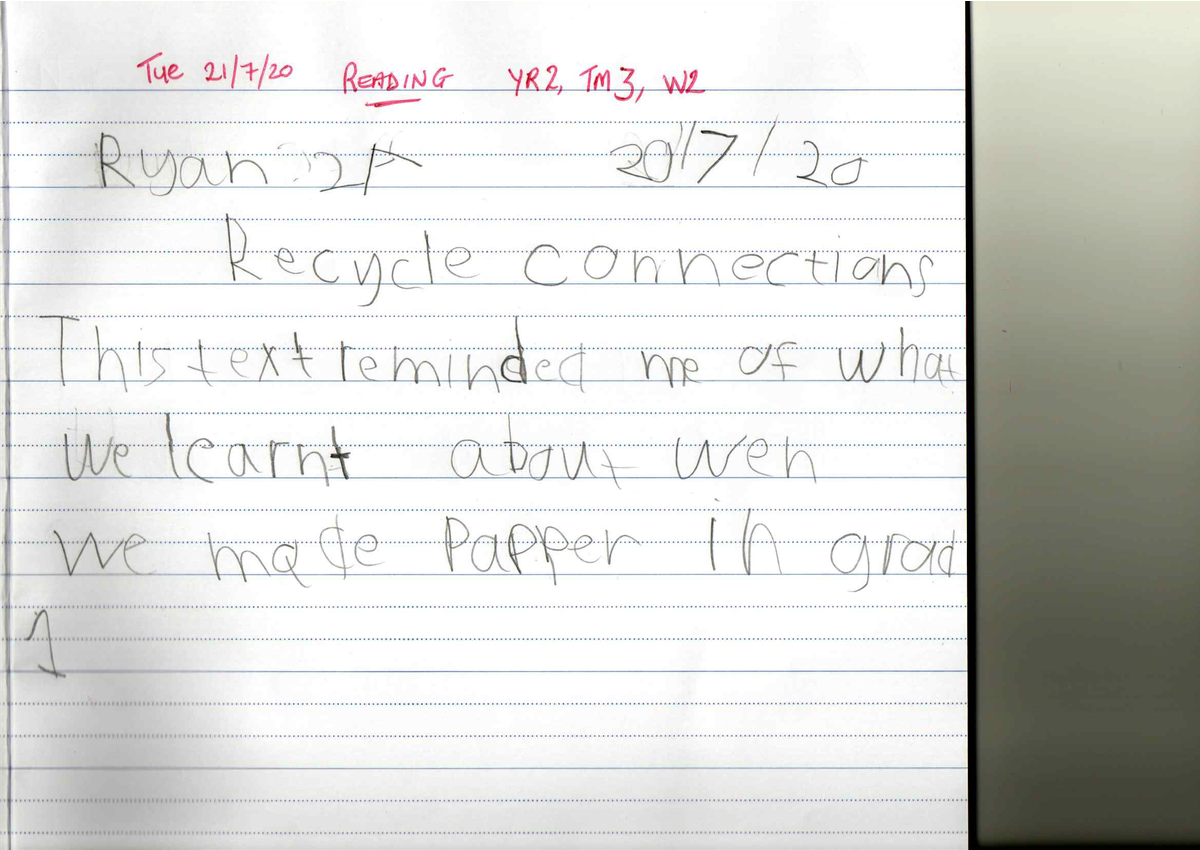 Tue 21/7/20 READING YR2, TM3, W2
Ryan 2A 20/7/20
Recycle connections
This text reminded me of what
we learnt about wen
we made Papper in grad
1